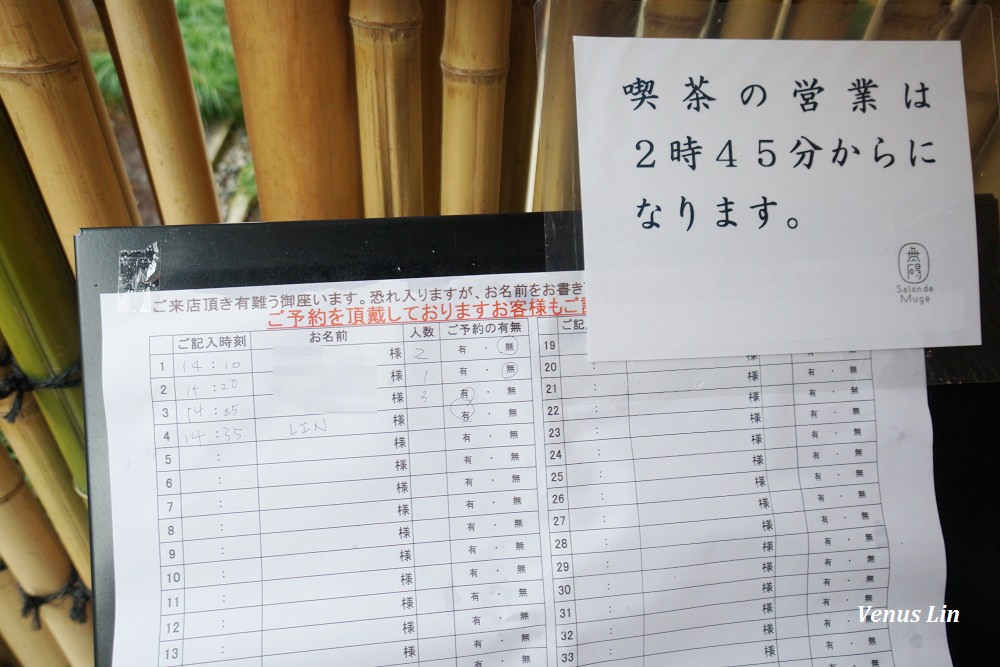 喫茶の営業は
2時45分からに
なります。
無碍
Salon de
Muge
ご来店頂き有難う御座います。恐れ入りますが、お名前をお書き
ご予約を頂戴しておりますお客様もご記
ご記入時刻 お名前 人数 ご予約の有無
1 14:10 様 2 有・無
2 14:20 様 1 有・無
3 14:25 様 3 有・無
4 14:35 LIN 様 有・無
5 : 様 有・無
6 : 様 有・無
7 : 様 有・無
8 : 様 有・無
9 : 様 有・無
10 : 様 有・無
11 : 様 有・無
12 : 様 有・無
13 様 有・無
ご記
19
20 : 様 有・無
21 : 様 有・無
22 : 様 有・無
23 : 様 有・無
24 : 様 有・無
25 : 様 有・無
26 : 様 有・無
27 : 様 有・無
28 : 様 有・無
29 : 様 有・無
30 : 様 有・無
31 : 様 有・無
32 : 様 有・無
33 : 様 有・無
Venus Lin